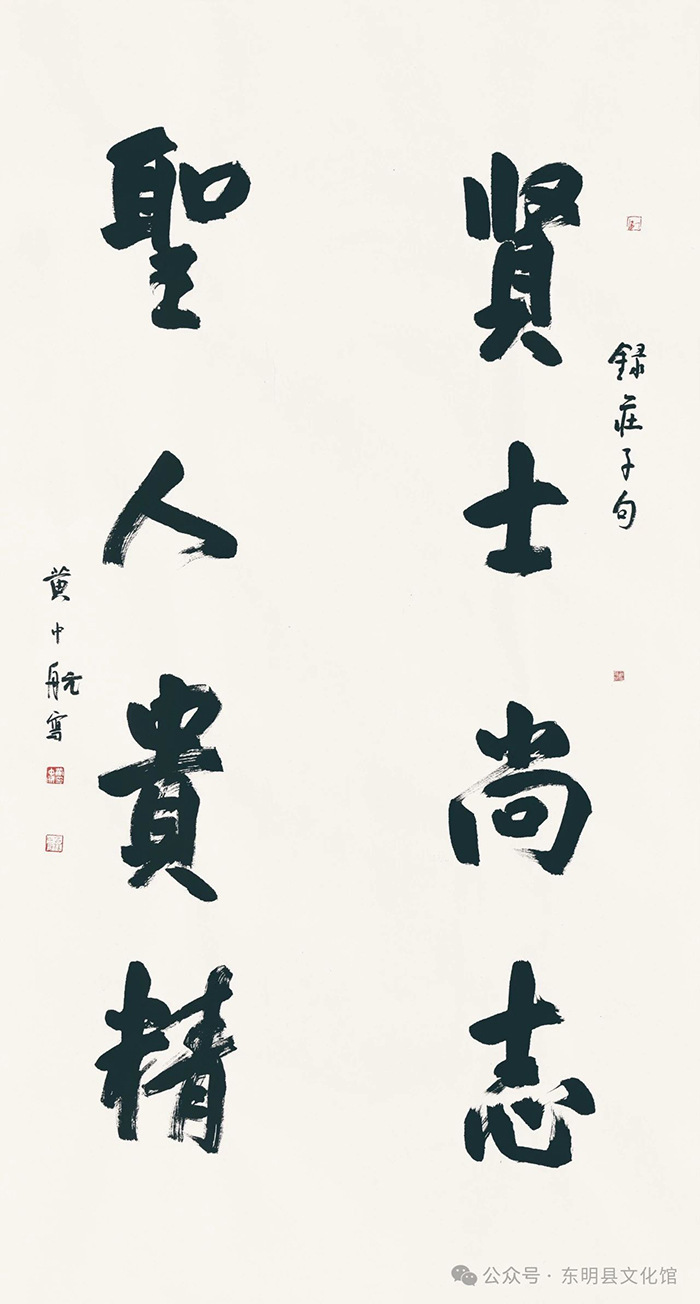 录莊子句
贤士尚志
聖人貴精
黄中航寫
公众号·东明县文化馆